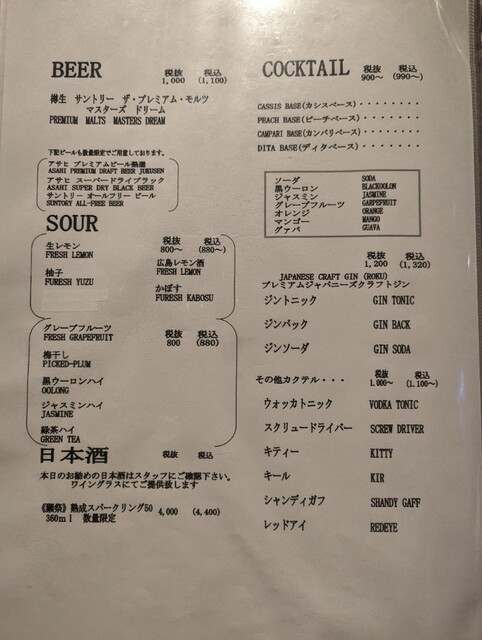 BEER 税抜 税込
1,000 (1,100)
樽生 サントリー ザ・プレミアム・モルツ
マスターズ ドリーム
PREMIUM MALTS MASTERS DREAM
下記ビールも数量限定でご用意しております。
アサヒ プレミアムビール熟撰
ASAHI PREMIUM DRAFT BEER JUKUSEN
アサヒ スーパードライブラック
ASAHI SUPER DRY BLACK BEER
サントリー オールフリー ビール
SUNTORY ALL-FREE BEER
SOUR
税抜 税込
800〜 (880〜)
生レモン
FRESH LEMON
広島レモン酒
FRESH LEMON
柚子
FURESH YUZU
かぼす
FURESH KABOSU
グレープフルーツ 税抜 税込
FRESH GRAPEFRUIT 800 (880)
梅干し
PICKED-PLUM
黒ウーロンハイ
OOLONG
ジャスミンハイ
JASMINE
緑茶ハイ
GREEN TEA
日本酒 税抜 税込
本日のお勧めの日本酒はスタッフにご確認下さい。
ワイングラスにてご提供致します
《獺祭》熟成スパークリング50 4,000 (4,400)
360ml 数量限定
COCKTAIL 税抜 税込
900〜 (990〜)
CASSIS BASE(カシスベース)・・・・・・・・
PEACH BASE(ピーチベース)・・・・・・・・
CAMPARI BASE(カンパリベース)・・・・・・・・
DITA BASE(ディタベース)・・・・・・・・
ソーダ SODA
黒ウーロン BLACKOOLON
ジャスミン JASMINE
グレープフルーツ GARPEFRUIT
オレンジ ORANGE
マンゴー MANGO
グァバ GUAVA
税抜 税込
1,200 (1,320)
JAPANESE CRAFT GIN (ROKU)
プレミアムジャパニーズクラフトジン
ジントニック GIN TONIC
ジンバック GIN BACK
ジンソーダ GIN SODA
その他カクテル・・・ 税抜 税込
1,000〜 (1,100〜)
ウォッカトニック VODKA TONIC
スクリュードライバー SCREW DRIVER
キティー KITTY
キール KIR
シャンディガフ SHANDY GAFF
レッドアイ REDEYE